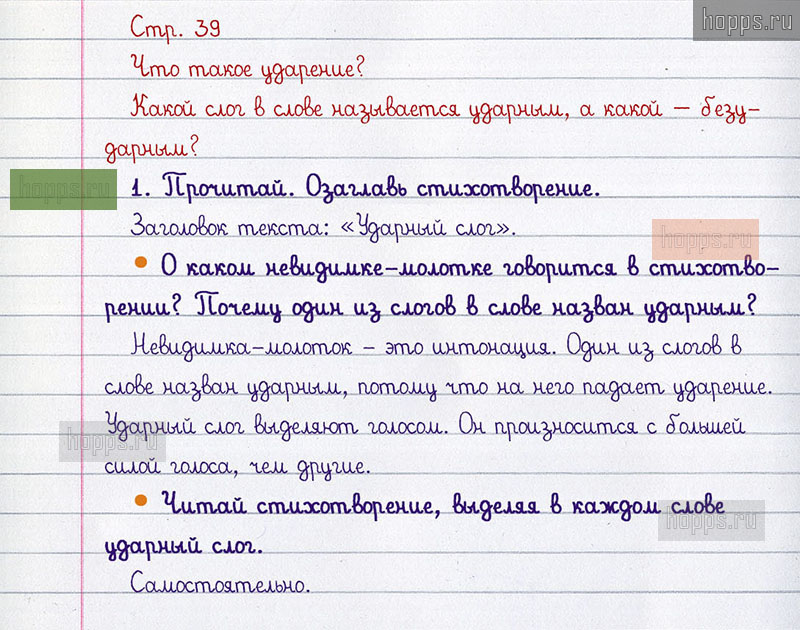 hopps.ru
Стр. 39
Что такое ударение?
Какой слог в слове называется ударным, а какой – безу-
дарным?
hopps.ru
1. Прочитай. Озаглавь стихотворение.
Заголовок текста: «Ударный слог».
hopps.ru
• О каком невидимке-молотке говорится в стихотво-
рении? Почему один из слогов в слове назван ударным?
Невидимка-молоток – это интонация. Один из слогов в
слове назван ударным, потому что на него падает ударение.
Ударный слог выделяют голосом. Он произносится с большей
hopps.ru
силой голоса, чем другие.
• Читай стихотворение, выделяя в каждом слове
hopps.ru
ударный слог.
Самостоятельно.